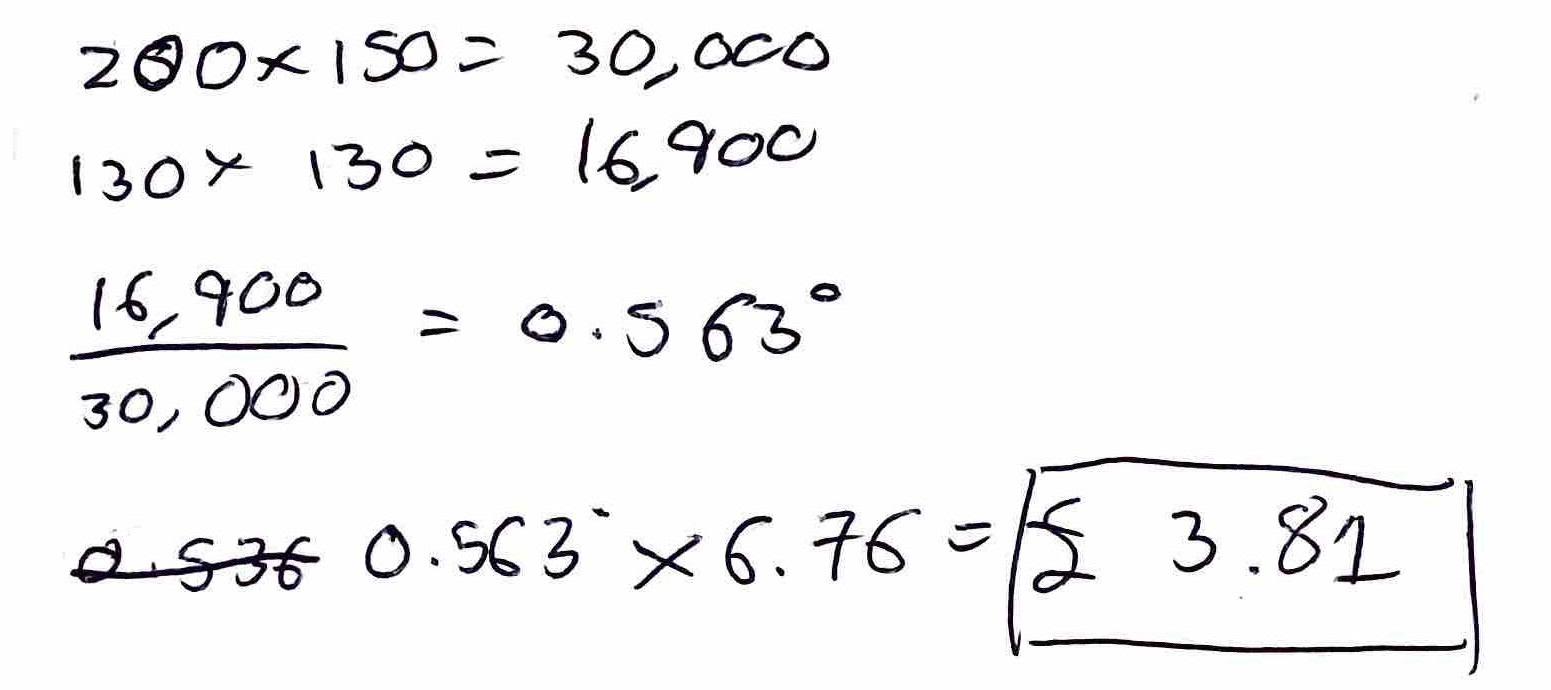 200×150 = 30,000
130× 130 = 16,900
16,900
30,000
= 0.563°
0.536 0.563° × 6.76 = £ 3.81